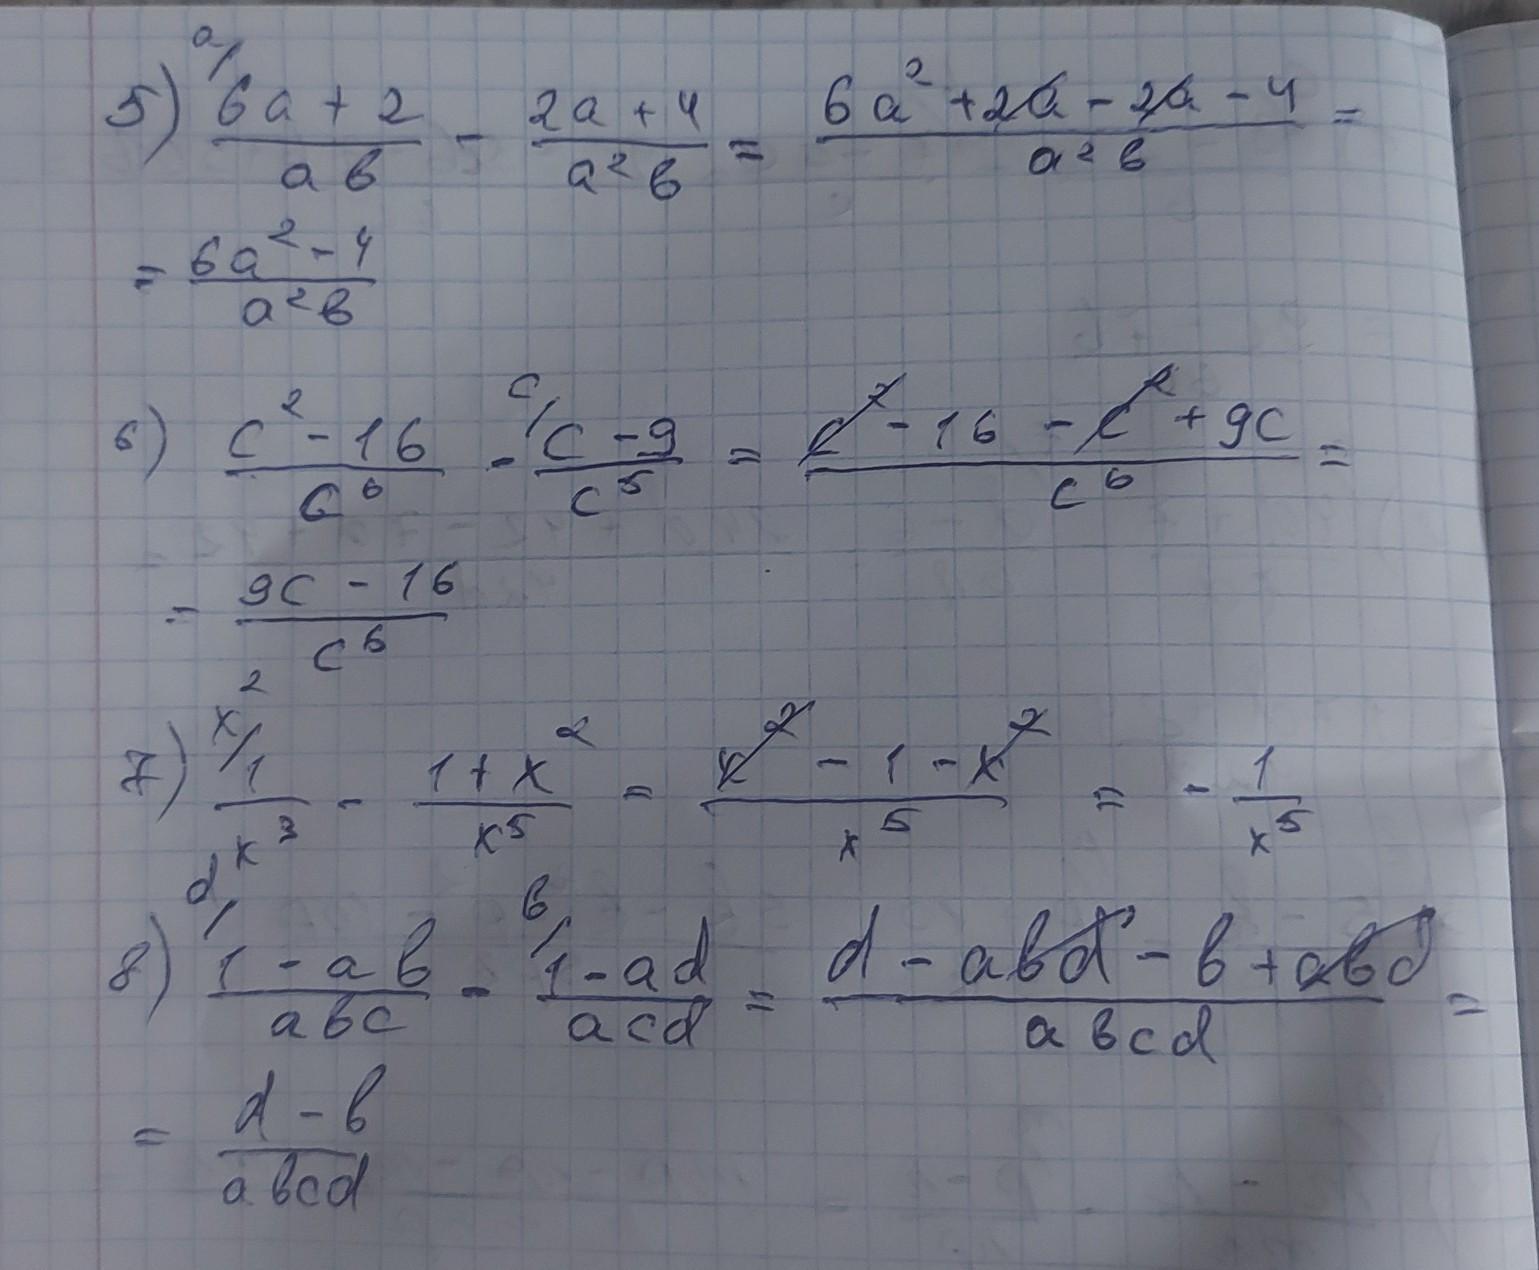 5) a/ (6a + 2)/(ab) - (2a + 4)/(a²b) = (6a² + 2a - 2a - 4)/(a²b) =
= (6a² - 4)/(a²b)
6) (c² - 16)/(c⁶) - c/ (c - 9)/(c⁵) = (c² - 16 - c² + 9c)/(c⁶) =
= (9c - 16)/(c⁶)
7) x²/ 1/(x³) - (1 + x²)/(x⁵) = (x² - 1 - x²)/(x⁵) = - 1/(x⁵)
8) d/ (1 - ab)/(abc) - b/ (1 - ad)/(acd) = (d - abd - b + abd)/(abcd) =
= (d - b)/(abcd)